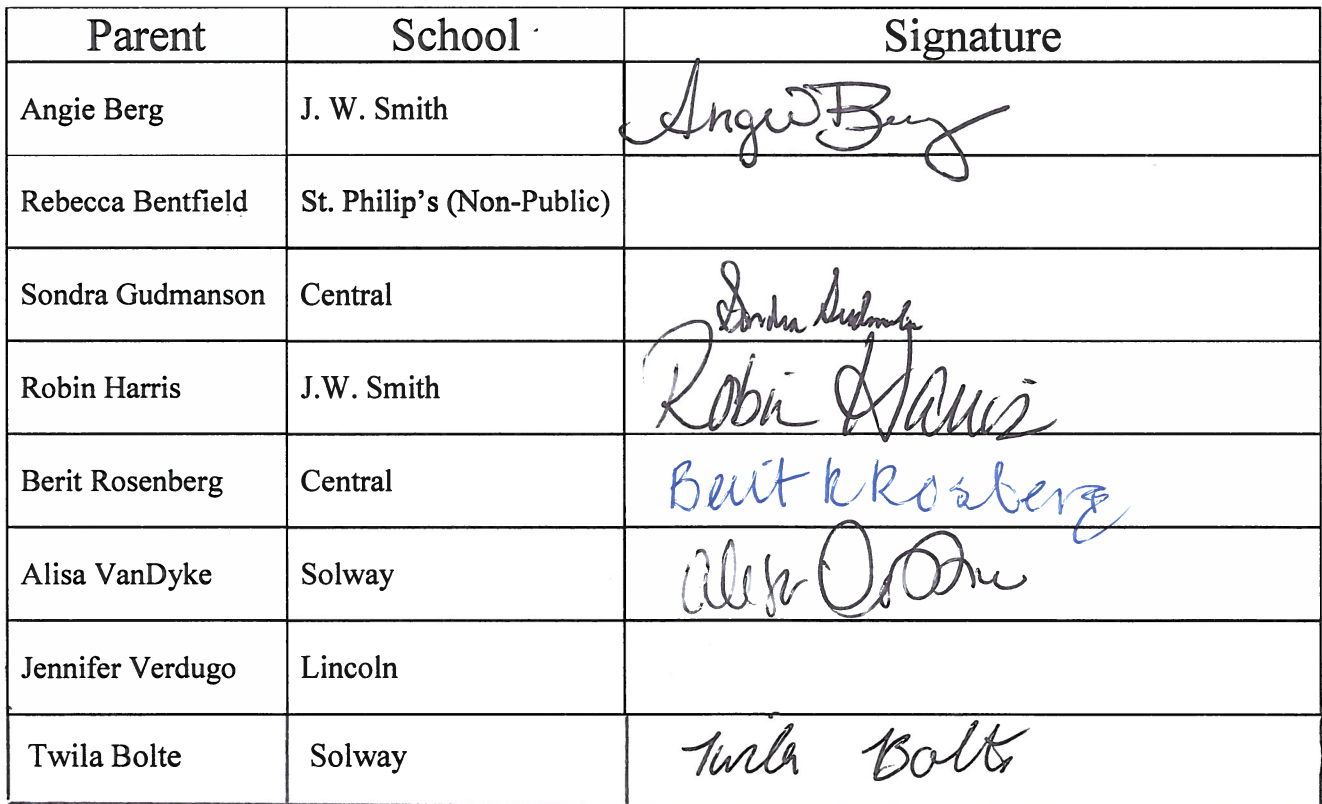 Parent School Signature
Angie Berg J. W. Smith Angie Berg
Rebecca Bentfield St. Philip's (Non-Public)
Sondra Gudmanson Central Sondra
Robin Harris J.W. Smith Robin Harris
Berit Rosenberg Central Berit K Rosberg
Alisa VanDyke Solway Alisa
Jennifer Verdugo Lincoln
Twila Bolte Solway Twila Bolte